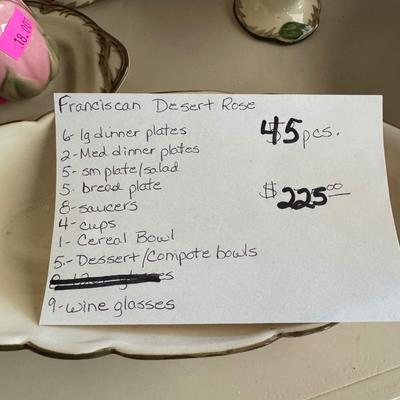 18.00
Franciscan Desert Rose
45 pcs.
6- lg dinner plates
2- Med dinner plates
5- sm plate/salad
5- bread plate
$225.00
8- saucers
4- cups
1- Cereal Bowl
5- Dessert/Compote bowls
9- wine glasses